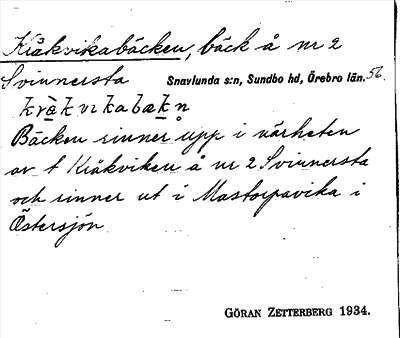 Kråkvikabäcken, bäck å nr 2
Svinnersta Snavlunda s:n, Sundbo hd, Örebro län. 56.
kràkvikabækn̥
Bäcken rinner upp i närheten
av t Kråkviken å nr 2 Svinnersta
och rinner ut i Mastorpavika i
Östersjön
GÖRAN ZETTERBERG 1934.